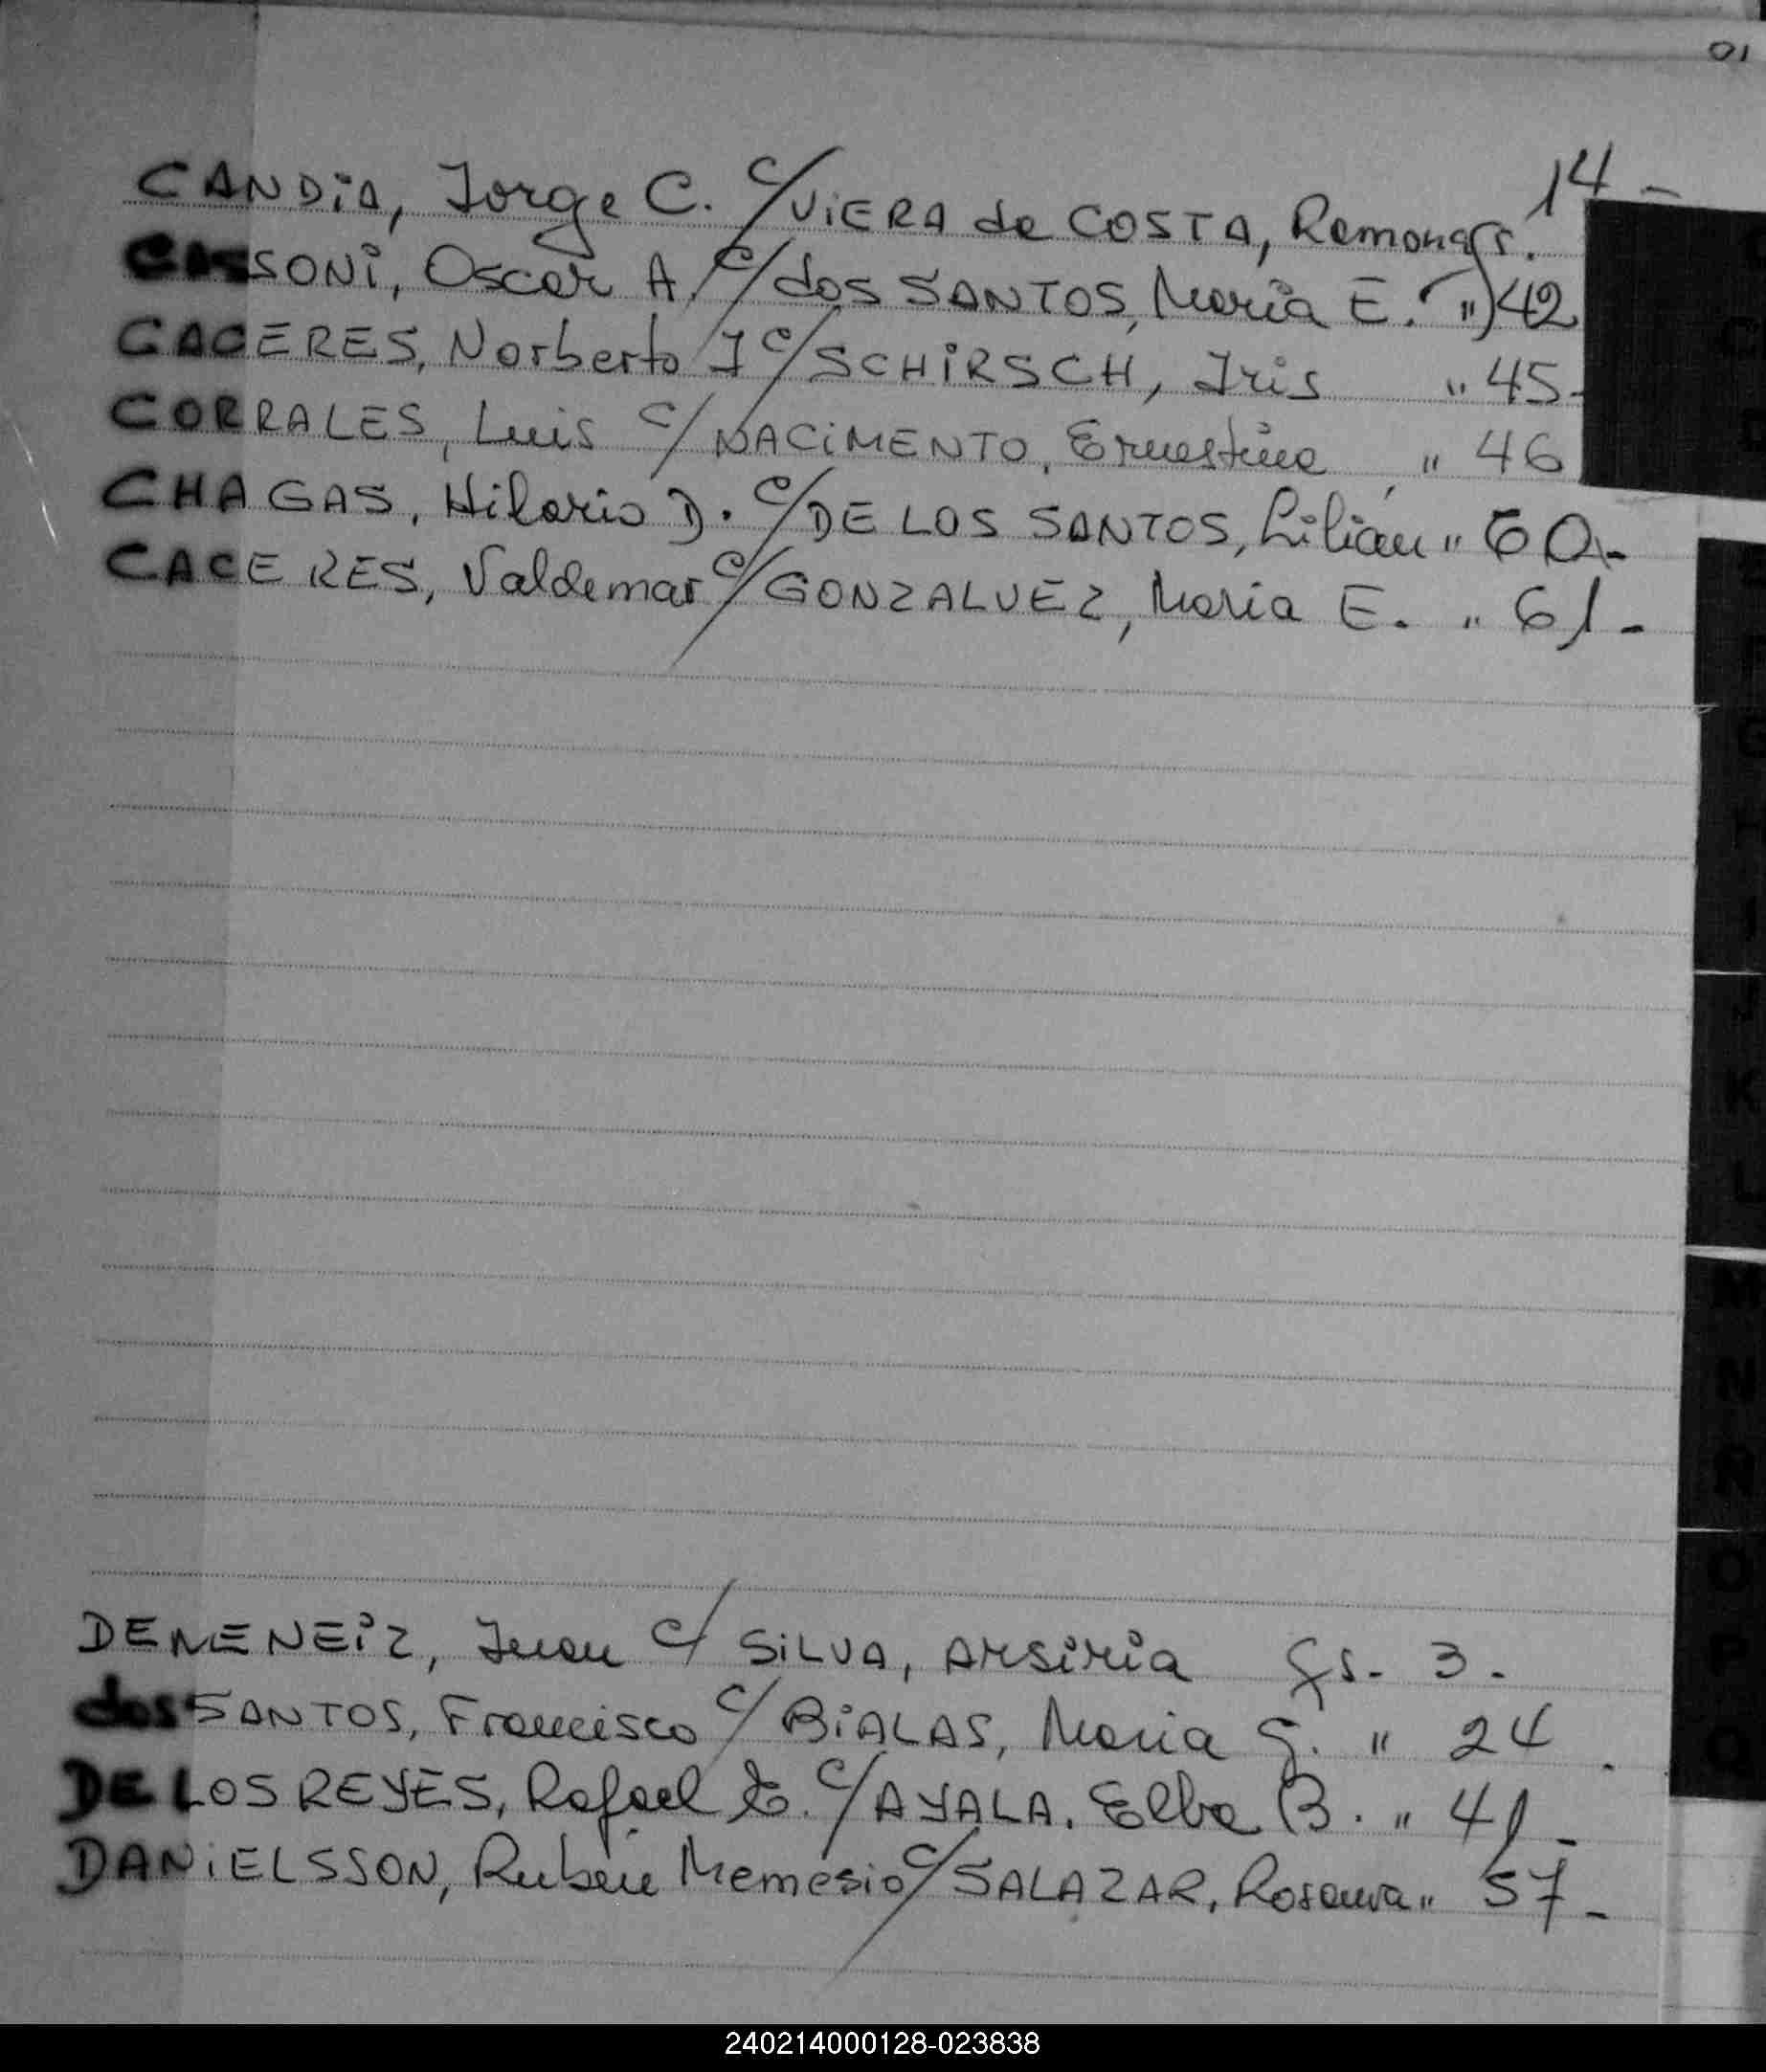 01
CANDiA, Jorge C. c/ViERA de COSTA, Ramona fs. 14-
CASSONi, Oscar A. c/dos SANTOS, María E. " 42
CACERES, Norberto J c/SCHiRSCH, Iris " 45-
CORRALES, Luis c/NACiMENTO, Ernestina " 46
CHAGAS, Hilario D. c/DE LOS SANTOS, Lilián " 60-
CACERES, Valdemar c/GONZALVEZ, Maria E. " 61-
DEMENEiZ, Juan c/ SiLVA, Arsiria fs. 3.
dos SANTOS, Francisco c/ BiALAS, Maria G. " 24.
DE LOS REYES, Rafael E. c/AYALA. Elba B. " 41-
DANiELSSON, Rubén Memesio c/SALAZAR, Rosaura " 57-
K
L
M
N
Ñ
O
P
Q
240214000128-023838